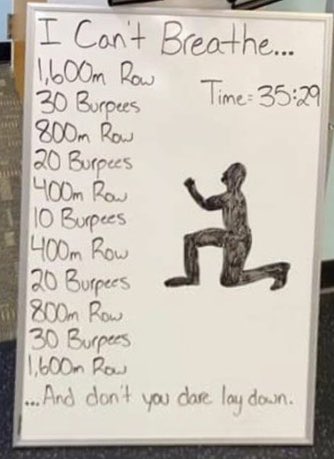 I Can't Breathe...
1,600m Row
Time = 35:29
30 Burpees
800m Row
20 Burpees
400m Row
10 Burpees
400m Row
20 Burpees
800m Row
30 Burpees
1,600m Row
...And don't you dare lay down.